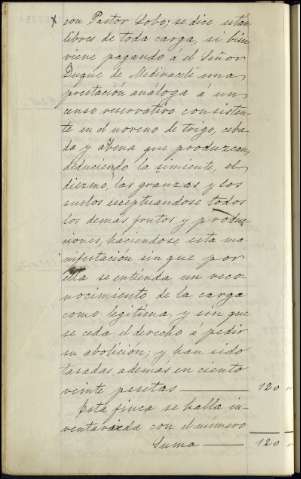 con Pastor Lobo; se dice están
libres de toda carga, si bien
viene pagando a el Señor
Duque de Medinaceli una
prestación análoga á un
censo reservativo consisten-
te en el noveno de trigo, ceba-
da y abena que produzcan,
deduciendo la simiente, el
diezmo, las granzas y los
suelos esceptuandose todos
los demas frutos y produc-
ciones, haciendose esta ma-
nifestación sin que por
ella se entienda un reco-
nocimiento de la carga
como legitima, y sin que
se ceda el derecho á pedir
su abolición; y han sido
tasadas ademas en ciento
veinte pesetas 120
Esta finca se halla in-
ventariada con el numero
Suma 120